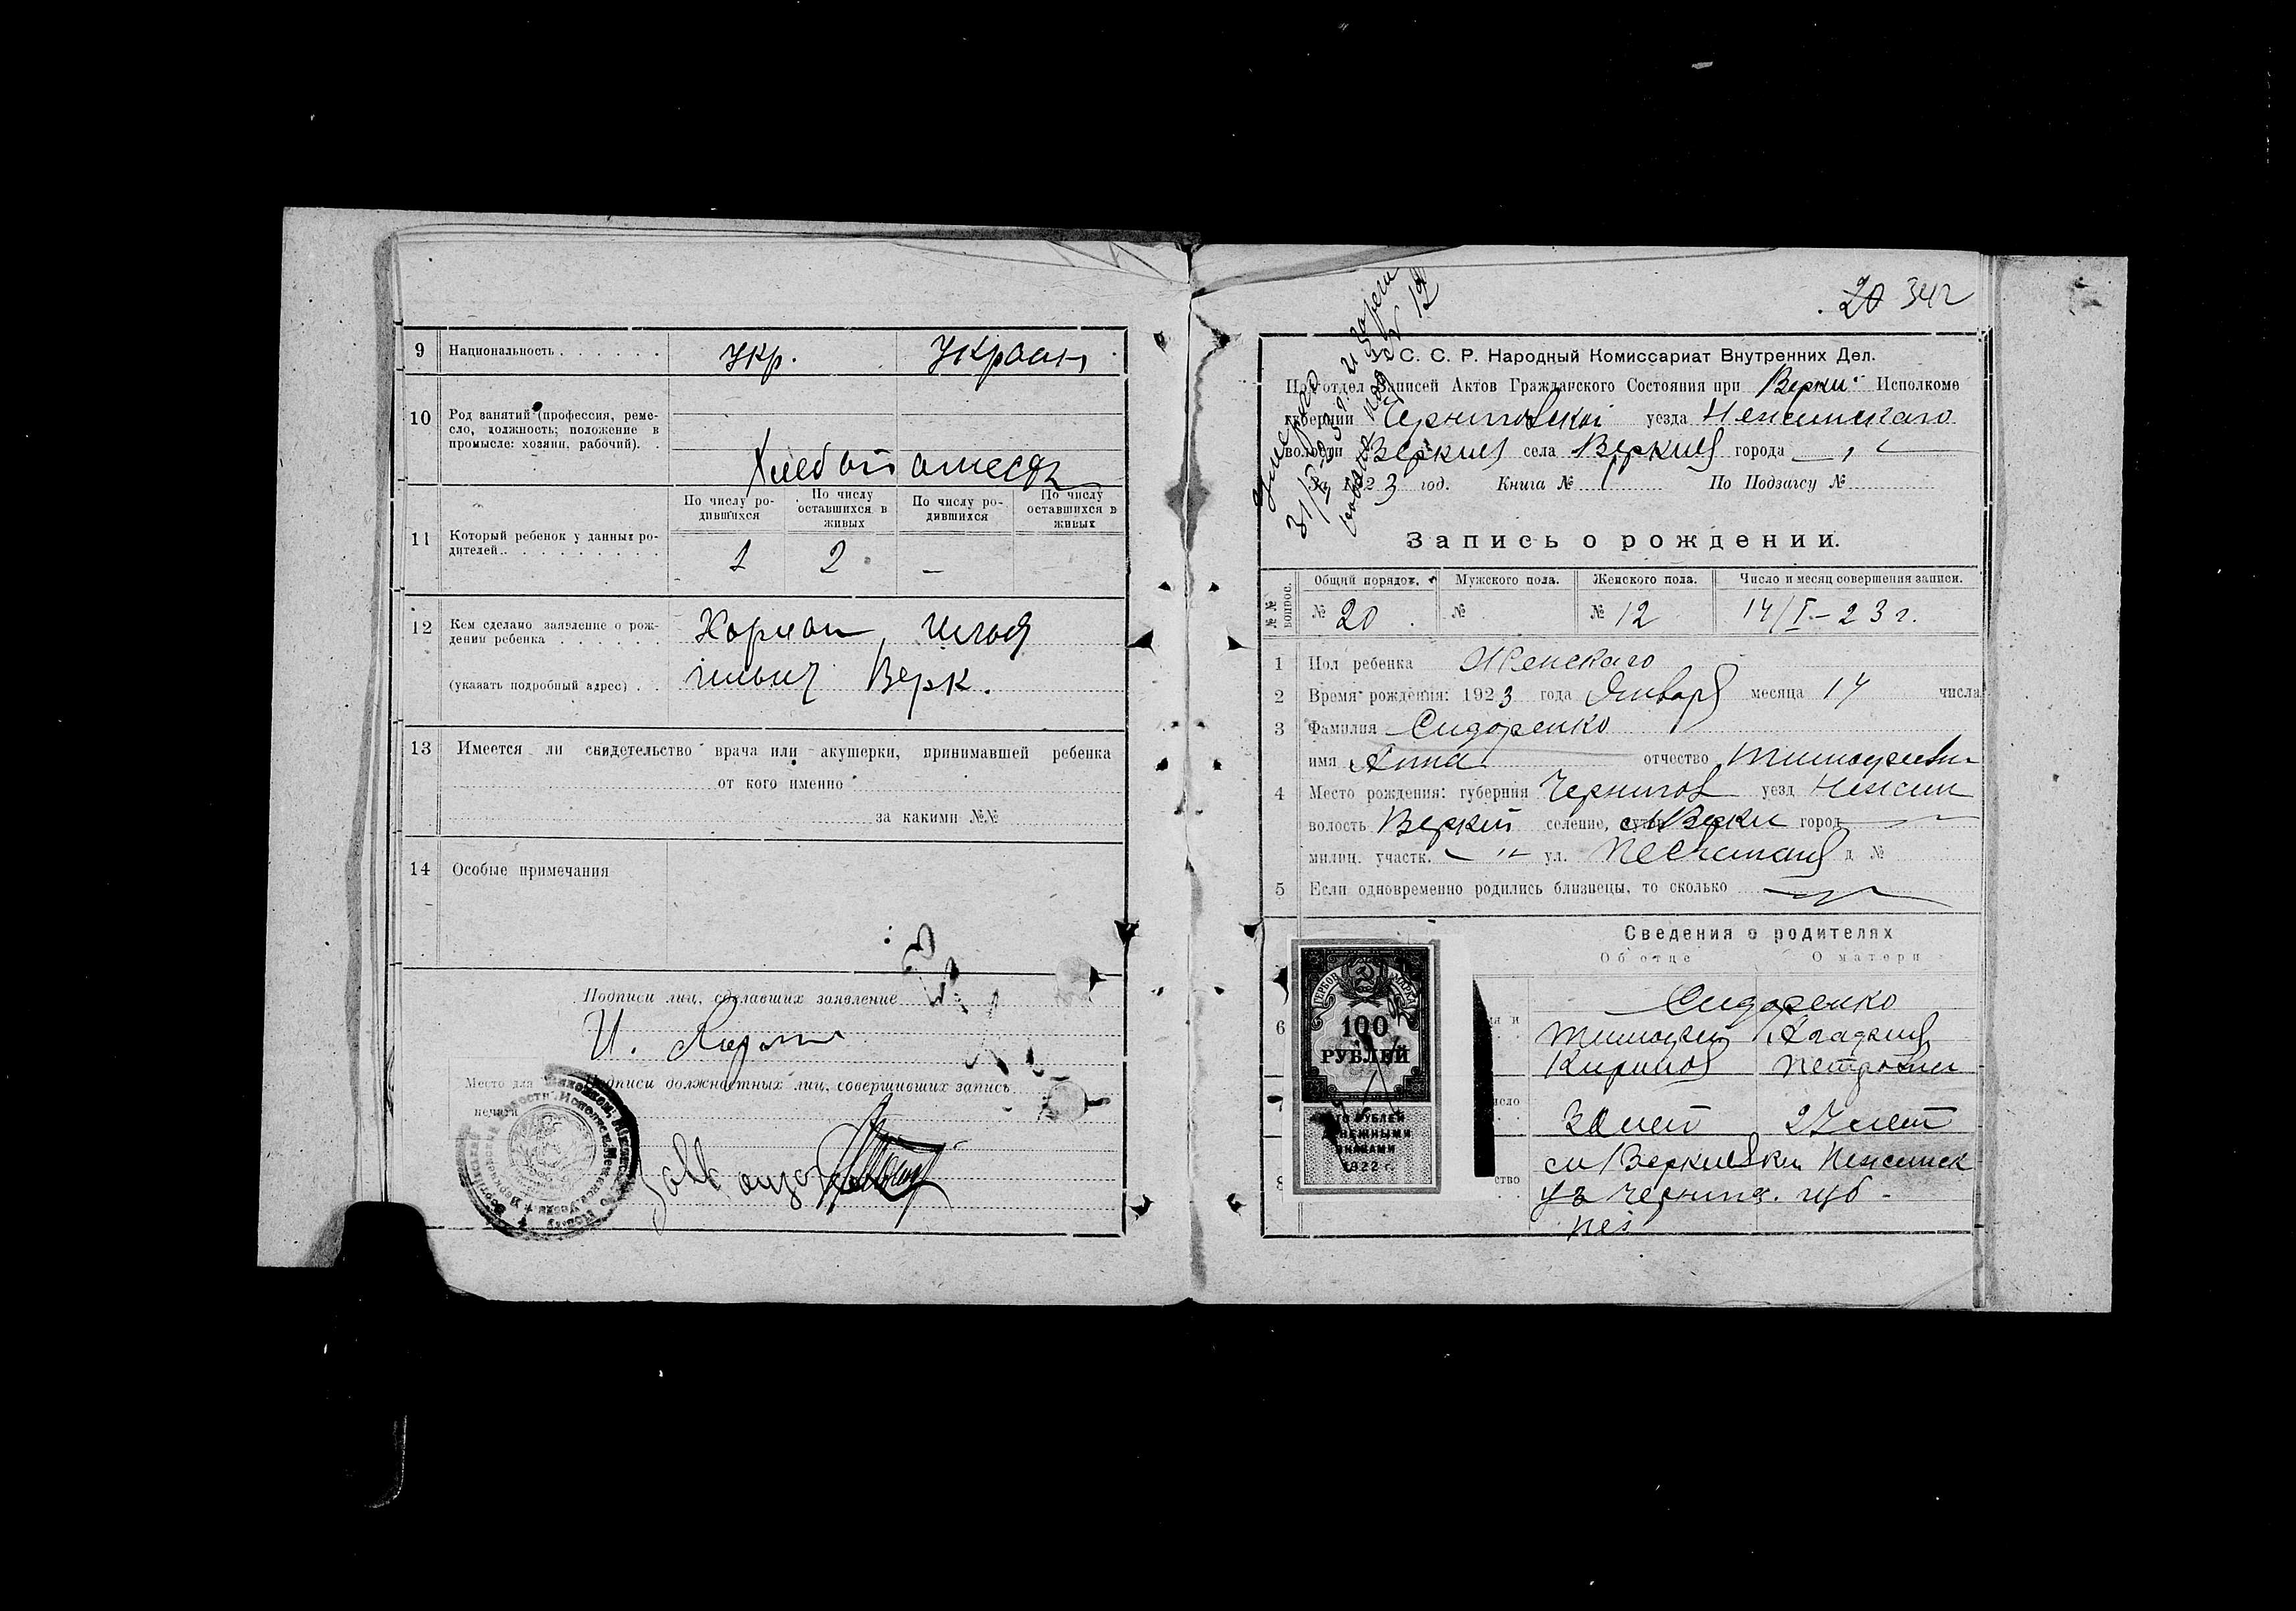 9 Национальность . . . . . . укр. украин
10 Род занятий (профессия, реме-
сло, должность; положение в
промысле: хозяин, рабочий). .
Хлебопашество
По числу ро-
дившихся
По числу
оставшихся в
живых
По числу ро-
дившихся
По числу
оставшихся в
живых
11 Который ребенок у данных ро-
дителей. . . . . . . . . .
1 2 —
12 Кем сделано заявление о рож-
дении ребенка . . . . . .
(указать подробный адрес) . .
Илья
Ильич Верк.
13 Имеется ли свидетельство врача или акушерки, принимавшей ребенка
от кого именно
за какими №№
14 Особые примечания
Подписи лиц, сделавших заявление
И.
Место для
печати
Подписи должностных лиц, совершивших запись
20 342
С. С. Р. Народный Комиссариат Внутренних Дел.
Подотдел Записей Актов Гражданского Состояния при Верки Исполкоме
губернии Черниговской уезда Неженскаго
волости Веркиев села Веркиев города —
1923 год. Книга № По Подзагсу №
Запись о рождении.
№№ вопрос.
Общий порядок. Мужского пола. Женского пола. Число и месяц совершения записи.
№ 20 № № 12 14/I – 23 г.
1 Пол ребенка Женскаго
2 Время рождения: 1923 года Января месяца 14 числа
3 Фамилия Сидоренко
имя Анна отчество Тимофеевн
4 Место рождения: губерния Чернигов уезд Нежин
волость Веркий селение, хутор м Верки город
милиц. участк. — " — ул. Песчаная д №
5 Если одновременно родились близнецы, то сколько
Сведения о родителях
Об отце О матери
6
Сидоренко
Тимофей
Кирилов Петровна
7
30 лет 27 лет
8
м Веркиевки Неженск
уз Чернигов. губ -
ГЕРБОВАЯ МАРКА
100
РУБЛЕЙ
СТО РУБЛЕЙ
ДЕНЕЖНЫМИ
ЗНАКАМИ
1922 г.